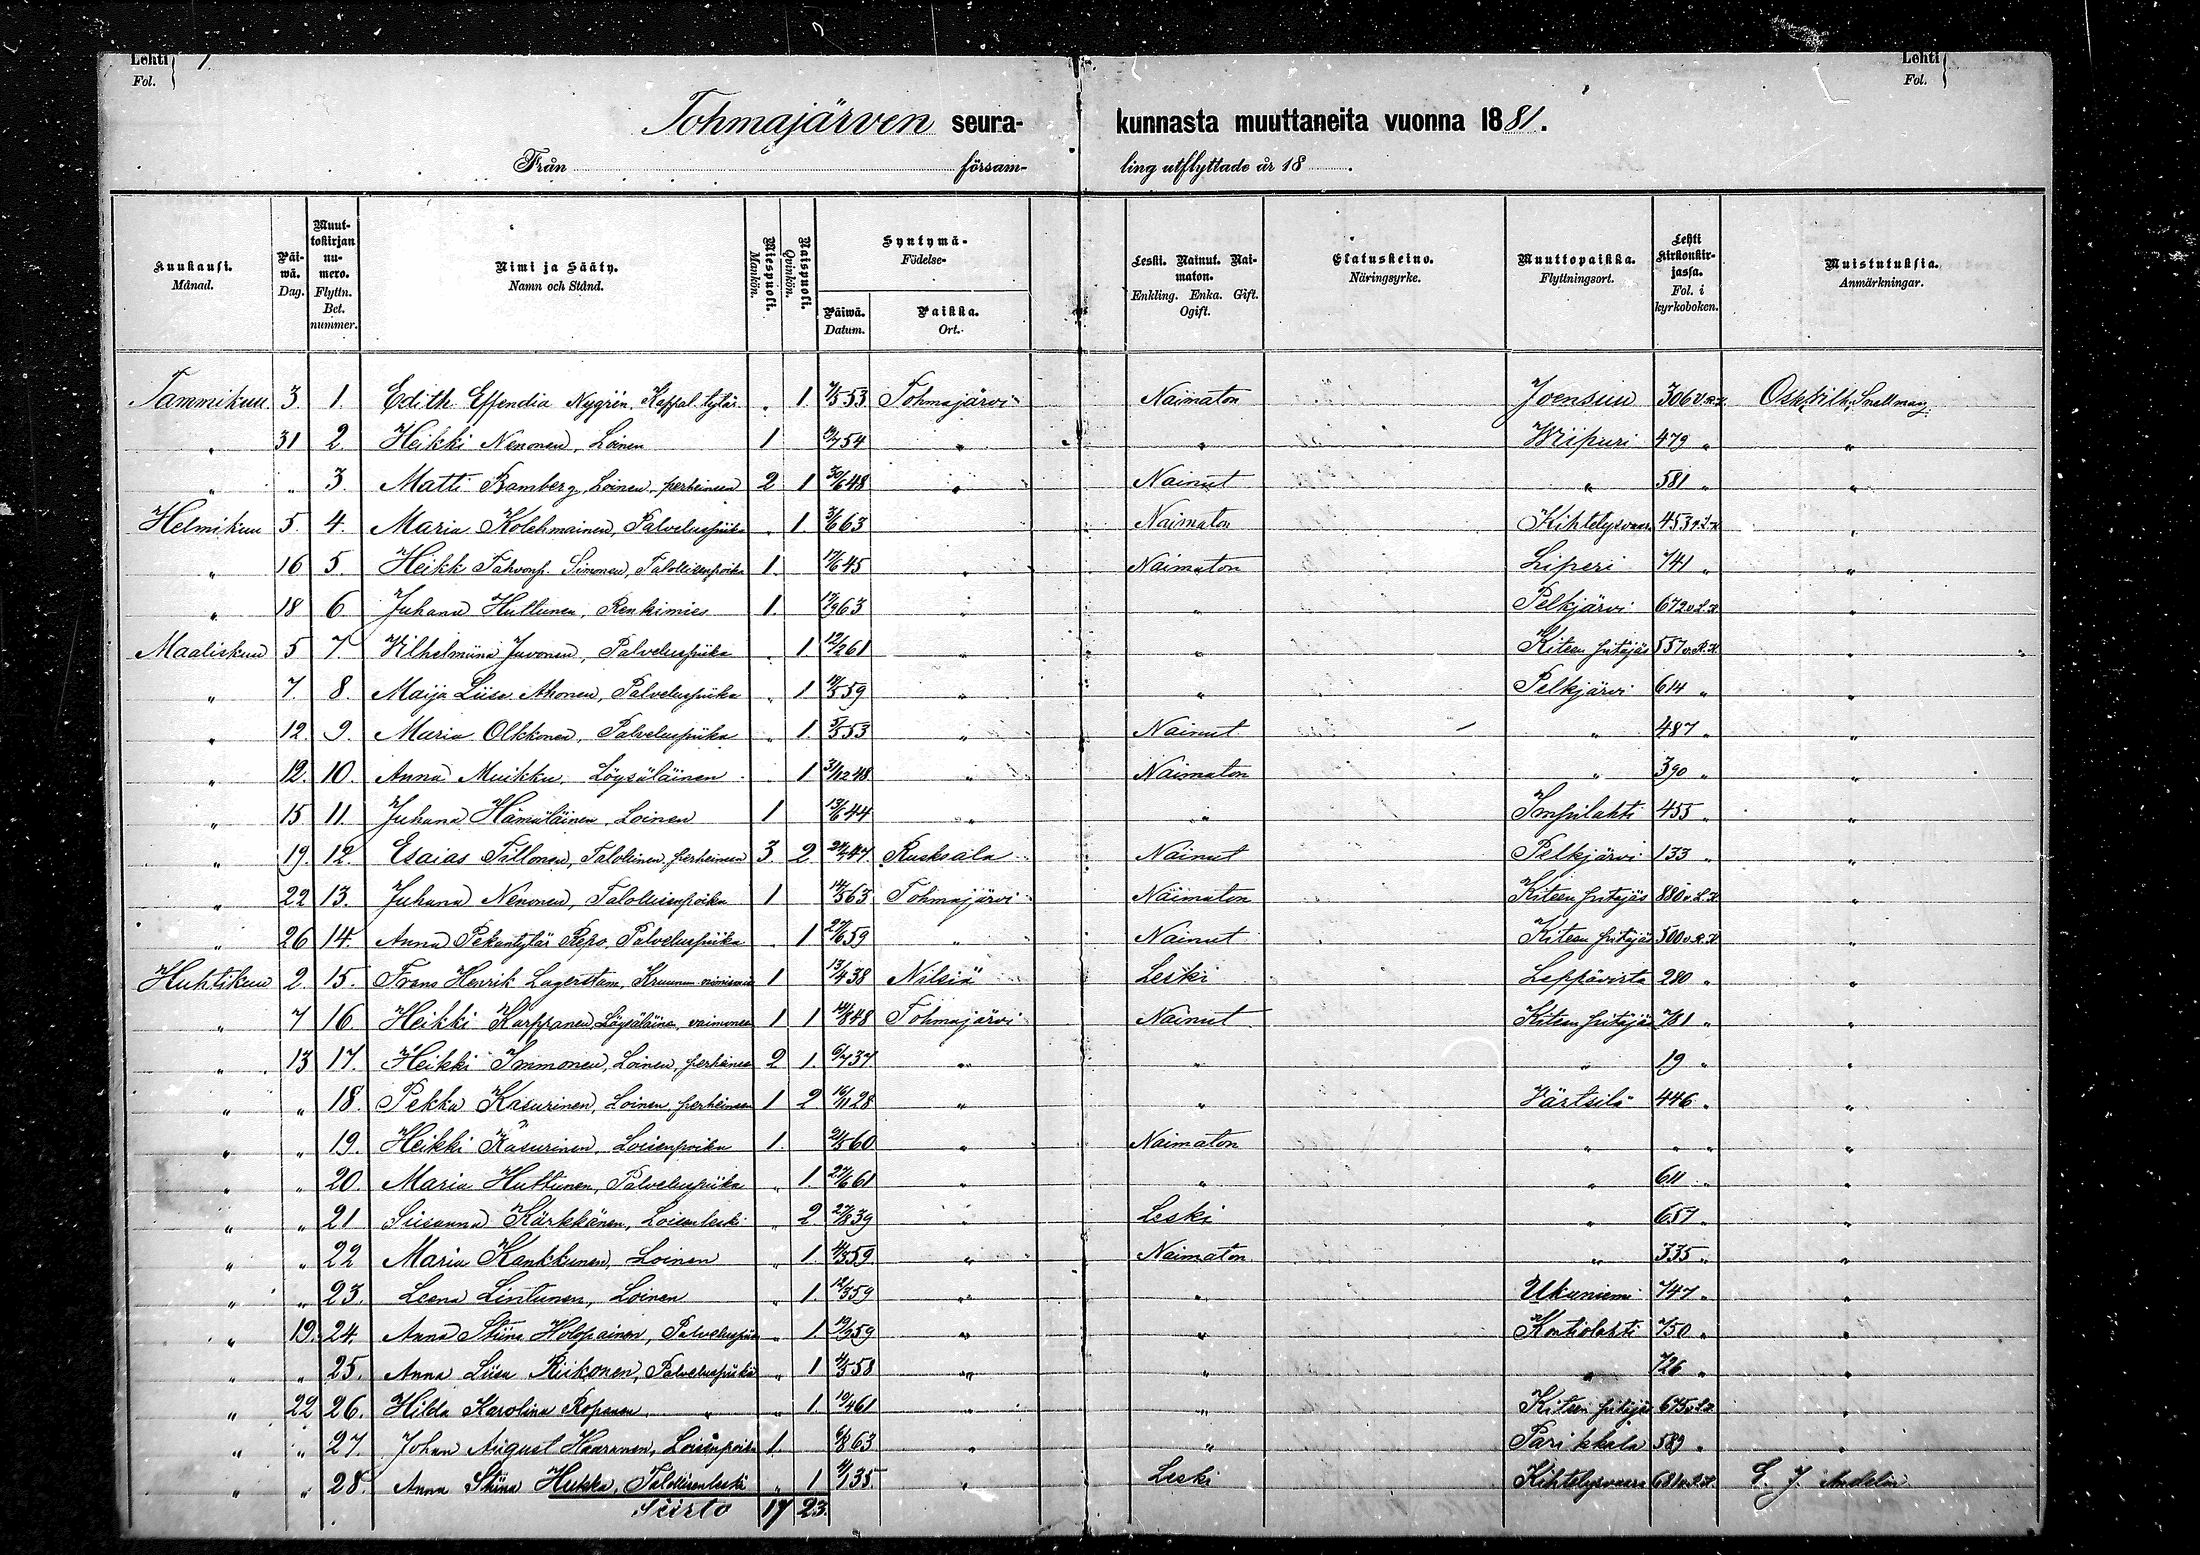 Lehti Fol. 1
Lehti Fol.
Tohmajärven seurakunnasta muuttaneita vuonna 1881.
Från försam-ling utflyttade år 18 .
Kuukausi. Månad. | Päiwä. Dag. | Muuttokirjan numero. Flyttn. Bet. nummer. | Nimi ja Sääty. Namn och Stånd. | Miespuoli. Mankön. | Naispuoli. Qvinkön. | Syntymä- Födelse- Päiwä. Datum. | Paikka. Ort. | Leski. Nainut. Naimaton. Enkling. Enka. Gift. Ogift. | Elatuskeino. Näringsyrke. | Muuttopaikka. Flyttningsort. | Lehti Kirkonkirjassa. Fol. i kyrkoboken. | Muistutuksia. Anmärkningar.
Tammikuu 3. 1. Edith Effendia Nygrén, Kappal. tytär . 1 7/5 53 Tohmajärvi Naimaton Joensuu 306 Osk. Vilh. Snellman
" 31 2. Heikki Nenonen, Loinen 1 54 " " Wiipuri 479 " "
" " 3. Matti Ramberg, Loinen, perheineen 2 1 30/6 48 " Nainut " 581 " "
Helmikuu 5. 4. Maria Kolehmainen, Palveluspiika . 1. 3/6 63 Naimaton Kihtelysvaara 453 "
" 16 5. Heikk Tahvonp. Simonen, Talollisenpoika 1. 17/6 45 " Naimaton Liperi 741 " "
" 18 6 Juhana Huttunen, Renkimies 1. 17/9 63 " " Pelkjärvi 672 v.L.K "
Maaliskuu 5 7. Vilhelmiina Juvonen, Palveluspiika . 1. 12/2 61 " " Kiteen pitäjäs 557 v.R.K "
" 7. 8. Maija Liisa Ahonen, Palveluspiika " 1 59 " " Pelkjärvi 614 " "
" 12. 9. Maria Olkkonen, Palveluspiika " 1. 5/5 53 " Nainut " 487 " "
" 12. 10. Anna Muikku, Löysäläinen . 1 31/12 48 " Naimaton " 390 " "
" 15 11. Juhana Hämäläinen, Loinen 1 13/6 44 " " Impilahti 455 " "
" 19. 12. Esaias Tillonen, Talollinen, perheineen 3. 2. 47 Ruskeala Nainut Pelkjärvi 133 " "
" 22 13. Juhana Nenonen, Talollisenpoika 1 14/5 63 Tohmajärvi Naimaton Kiteen pitäjäs 880 v.L.K "
" 26 14. Anna Pekantytär Repo, Palveluspiika . 1 27/6 59 " Nainut Kiteen pitäjäs 500 v.R.K "
Huhtikuu 2. 15. Frans Henrik Lagerstam, Kruunun nimismies 1 13/4 38 Nilsiä Leski Leppävirta 280 " "
" 7 16. Heikki Karppanen, Löysäläinen, vaimoneen 1 1 14/8 48 Tohmajärvi Nainut Kiteen pitäjäs 781 " "
" 13 17. Heikki Immonen, Loinen, perheineen 2 1. 6/7 37 " " " 19 " "
" " 18. Pekka Kasurinen, Loinen, perheineen 1 2 16/11 28 " " Värtsilä 446 " "
" " 19. Heikki Kasurinen, Loisenpoika 1. 2/5 60 " Naimaton " " " "
" " 20. Maria Huttunen, Palveluspiika " 1. 27/6 61 " " 611 " "
" " 21 Susanna Kärkkänen, Loisenleski " 2 27/8 39 " Leski " 657 " "
" " 22 Maria Kankkunen, Loinen " 1. 4/3 59. " Naimaton " 335 " "
" " 23. Leena Lintunen, Loinen " 1. 12/3 59 " " Ukuniemi 747 " "
" 19. 24. Anna Stiina Holopainen, Palveluspiika " 1. 59 " " Kontiolahti 750 " "
" " 25. Anna Liisa Riikonen, Palveluspiika " 1 4/5 58 " " " 726 " "
" 22 26. Hilda Karolina Roponen " " 1. 19/4 61 " " Kiteen pitäjäs 675 v.L.K "
" " 27. Johan August Haaranen, Loisenpoika 1. 6/8 63 " " Parikkala 589 " "
" " 28. Anna Stiina Hukka, Talollisenleski " 1 4/1 35. " Leski Kihtelysvaara 681 v.L.K. J. Andelin
Siirto 17 23.